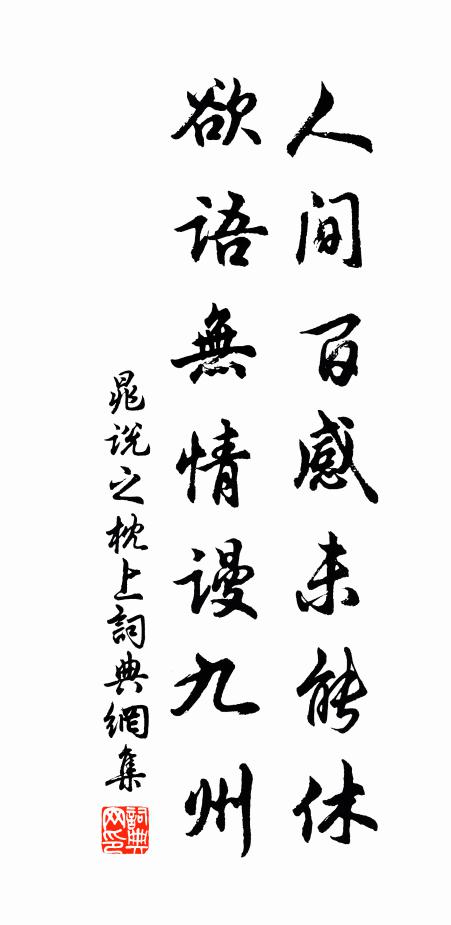 人间百感未能休
欲语無情谩九州
晁说之枕上詞典網集
詞典网印